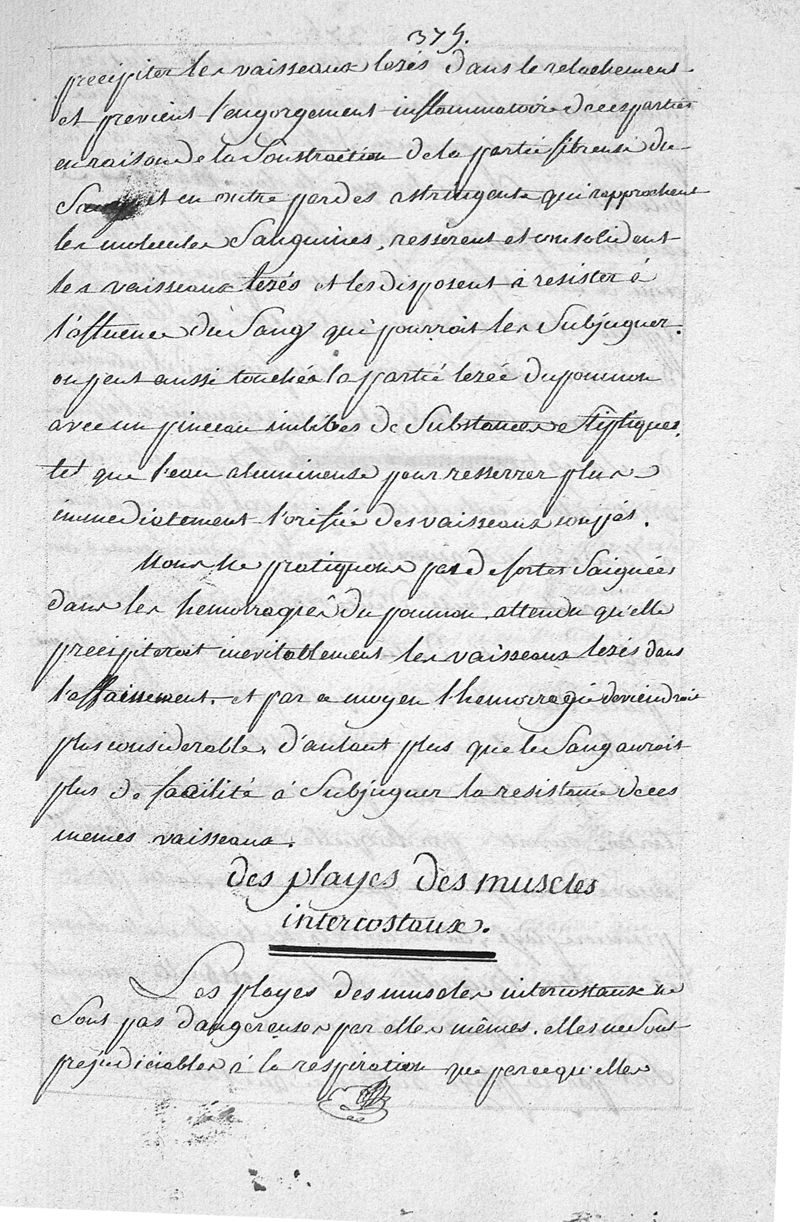 375.
precipiter les vaisseaux lezés dans le relachement
et previent l'engorgement inflammatoire de ces parties
en raison de la soustraction de la partie fibreuse du
Sang, et en outre par des astringents qui rapprochent
les molecules Sanguines, resserent et consolident
les vaisseaux lezés et les disposent à resister à
l'affluence du Sang qui pourroit les Subjuguer.
on peut aussi toucher la partie lezée du poumon
avec un pinceau imbibés de Substances Stiptiques,
tel que l'eau alumineuse pour resserrer plus
immediatement l'orifice des vaisseaux coupés.
Nous ne pratiquons pas de fortes Saignées
dans les hemorragies du poumon, attendu qu'elle
precipiteroit inevitablement les vaisseaux lezés dans
l'affaissement, et par ce moyen l'hemorragie deviendroit
plus considerable, d'autant plus que le Sang auroit
plus de facilité à Subjuguer la resistance de ces
memes vaisseaux.
des playes des muscles
intercostaux.
Les playes des muscles intercostaux ne
Sont pas dangereuses par elles mêmes. elles ne Sont
prejudiciables à la respiration que parce qu'elles